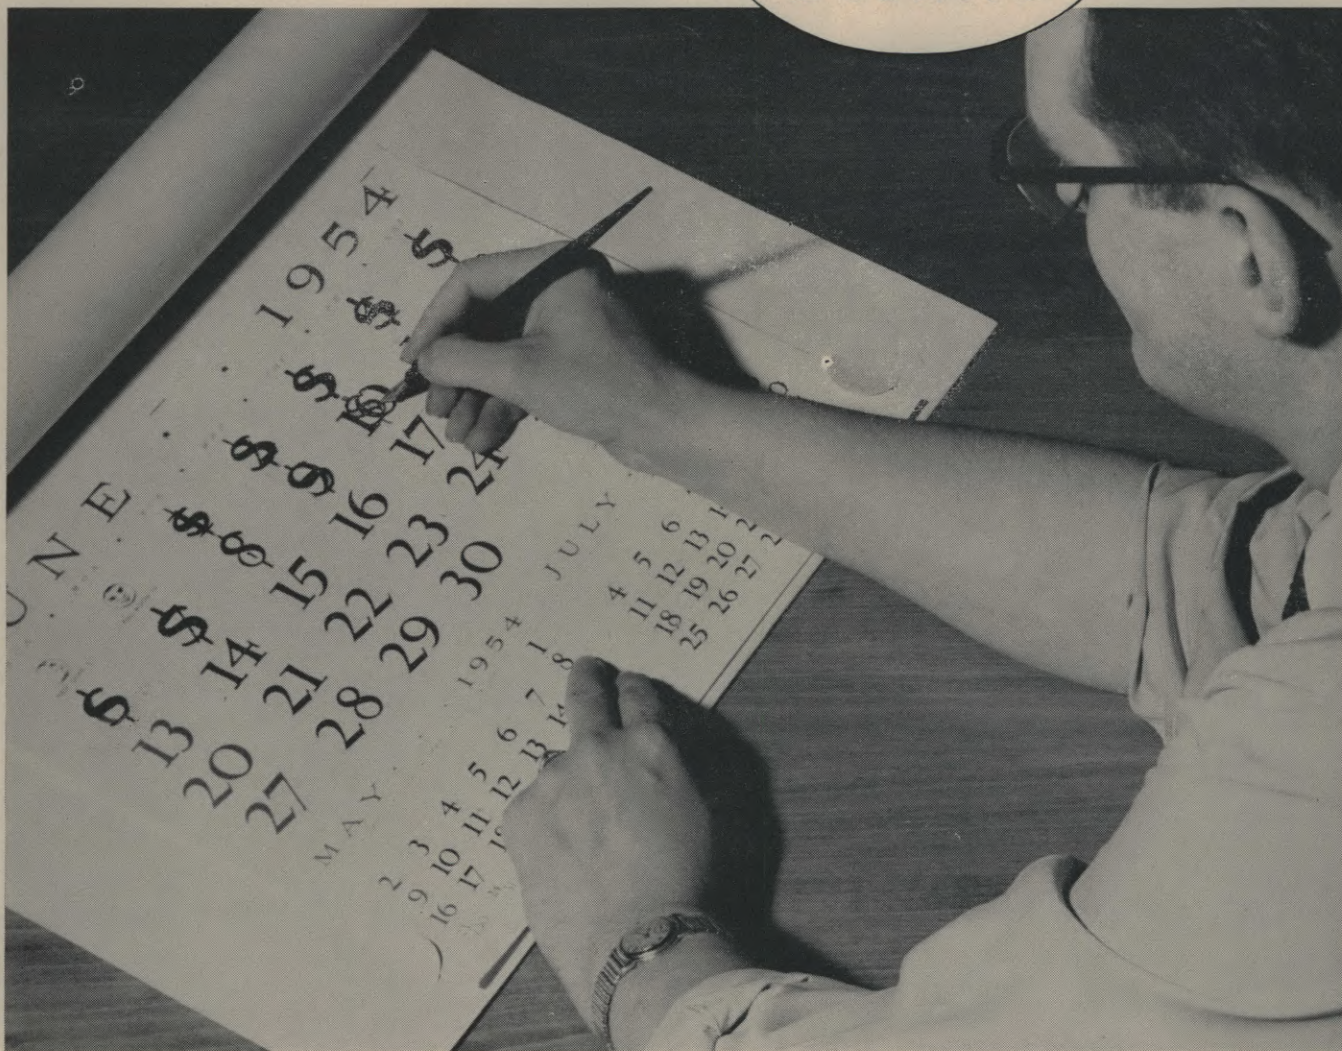 UNE 1954
$ $ $ $ $
$ $ 8 9 10
13 14 15 16 17
20 21 22 23 24
27 28 29 30
MAY 1954 JULY
1
2 3 4 5 6 7 8
9 10 11 12 13 14
16 17
4 5 6
11 12 13
18 19 20
25 26 27